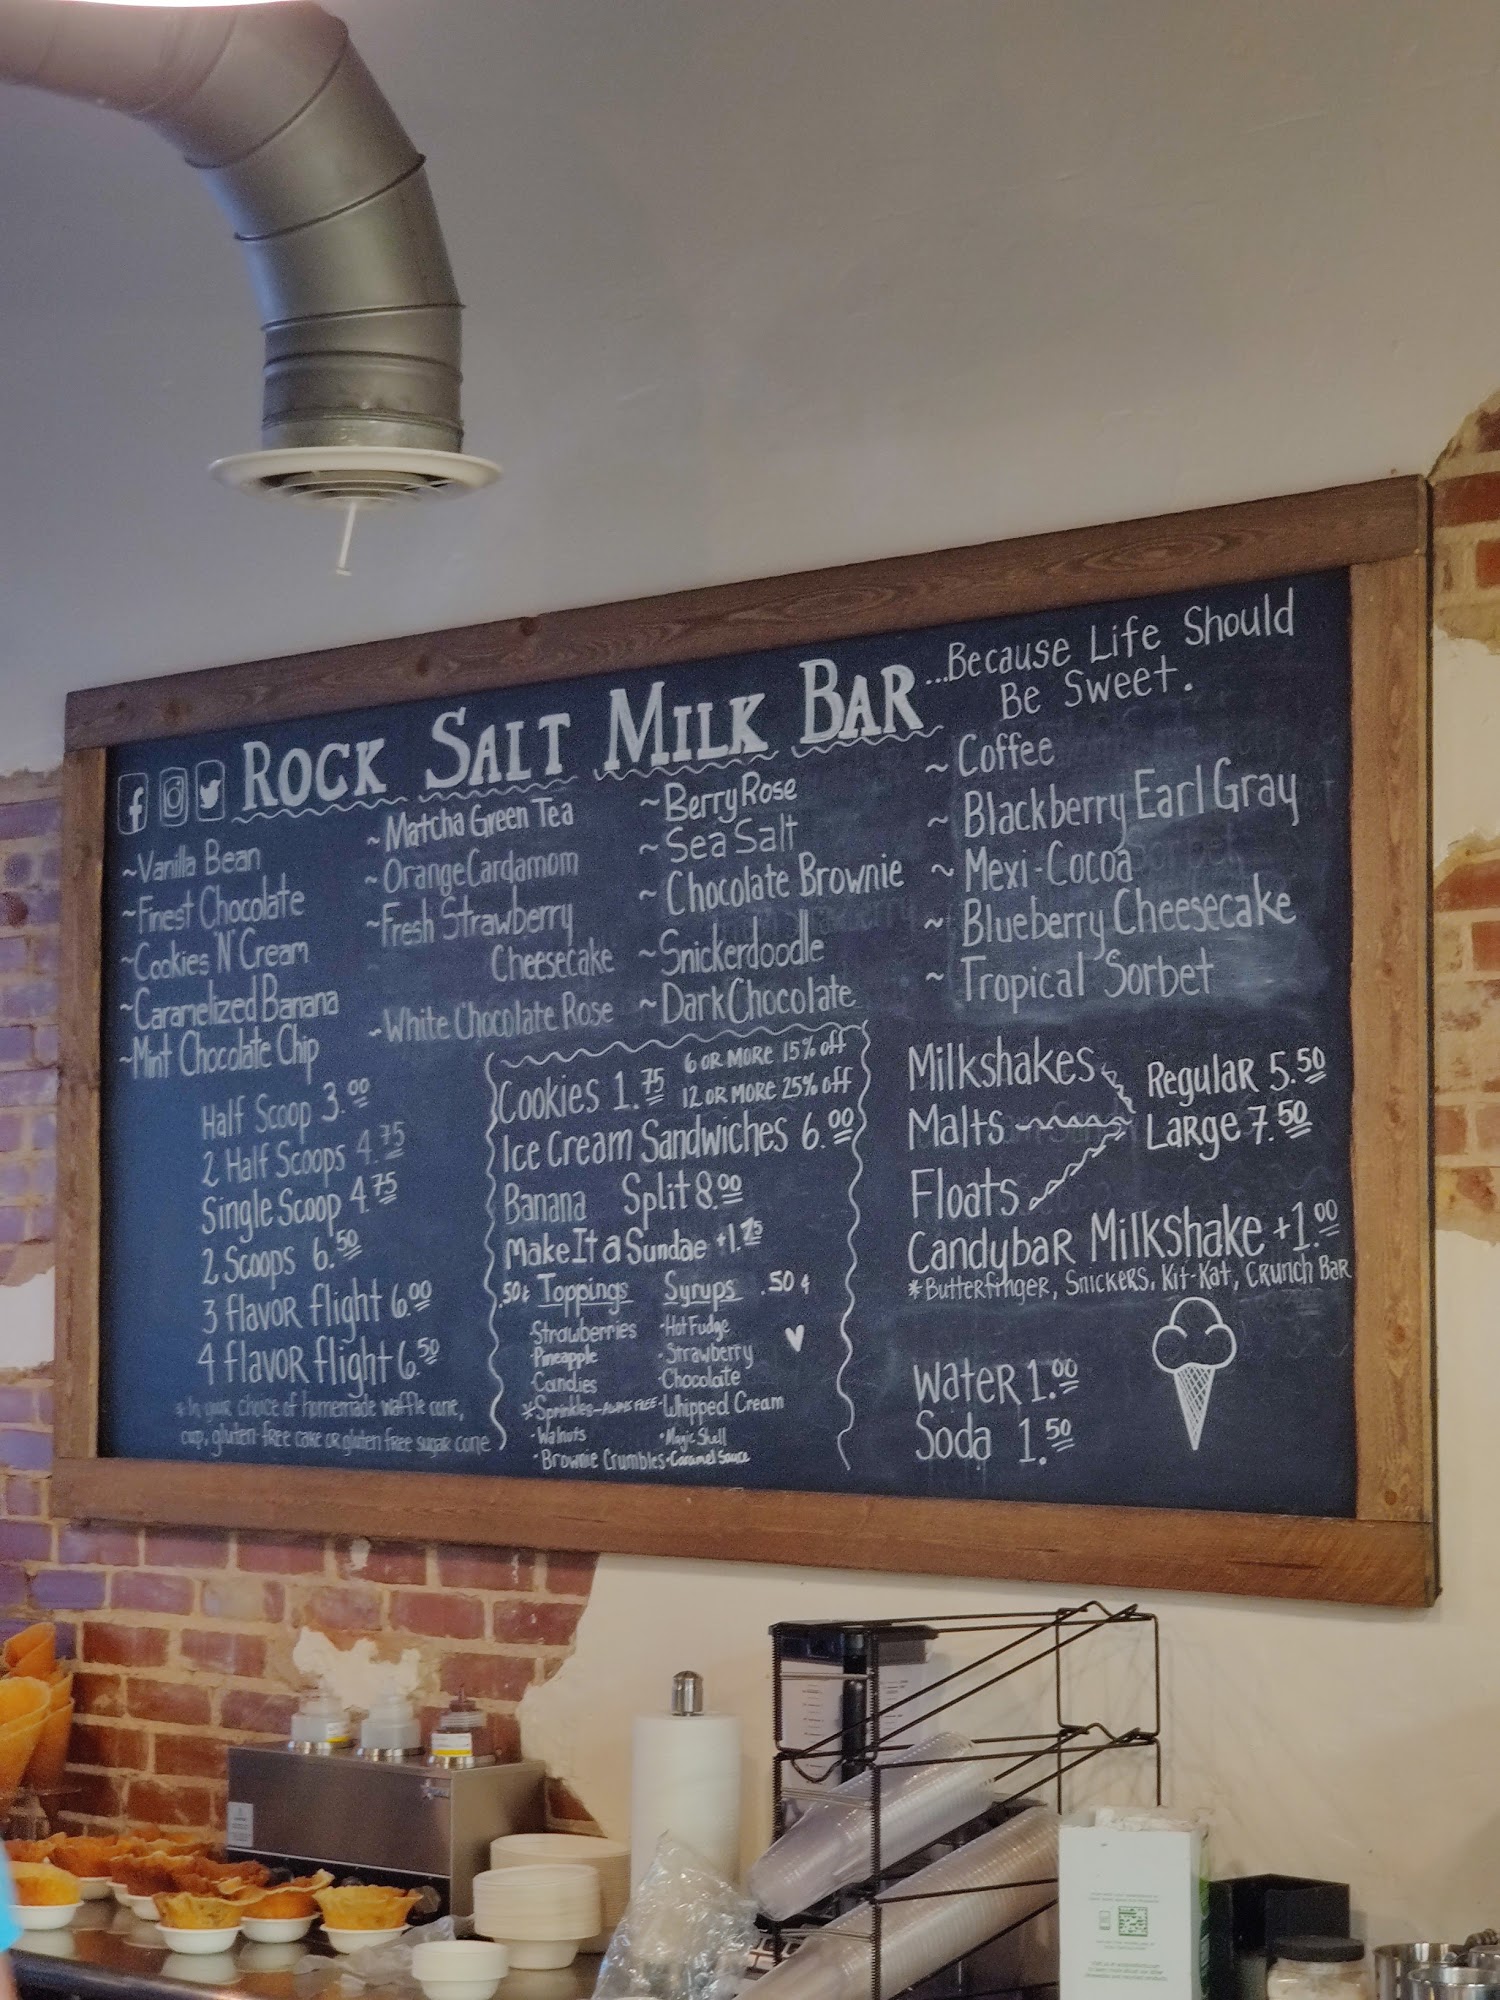 ROCK SALT MILK BAR
...Because Life Should
Be Sweet.
~Vanilla Bean
~Finest Chocolate
~Cookies N' Cream
~Caramelized Banana
~Mint Chocolate Chip
~Matcha Green Tea
~Orange Cardamom
~Fresh Strawberry
Cheesecake
~White Chocolate Rose
~Berry Rose
~Sea Salt
~Chocolate Brownie
~Snickerdoodle
~Dark Chocolate
~Coffee
~Blackberry Earl Gray
~Mexi-Cocoa
~Blueberry Cheesecake
~Tropical Sorbet
Half Scoop 3.00
2 Half Scoops 4.75
Single Scoop 4.75
2 Scoops 6.50
3 flavor flight 6.00
4 flavor flight 6.50
*In your choice of homemade waffle cone,
cup, gluten-free cake or gluten free sugar cone
Cookies 1.75
6 OR MORE 15% off
12 OR MORE 25% off
Ice Cream Sandwiches 6.00
Banana Split 8.00
Make It a Sundae +1.75
.50¢ Toppings
·Strawberries
·Pineapple
·Candies
*Sprinkles-
·Walnuts
·Brownie Crumbles
Syrups .50¢
·Hot Fudge
·Strawberry
·Chocolate
·Whipped Cream
·Magic Shell
·Caramel Sauce
Milkshakes
Malts
Floats
Regular 5.50
Large 7.50
Candybar Milkshake +1.00
*Butterfinger, Snickers, Kit-Kat, Crunch Bar
Water 1.00
Soda 1.50